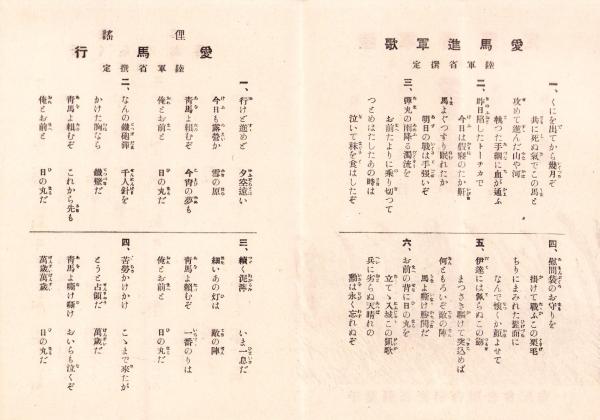 愛馬進軍歌
陸軍省撰定
一、くにを出てから幾月ぞ
共に死ぬ氣でこの馬と
攻めて進んだ山や河
執つた手綱に血が通ふ
二、昨日陷したトーチカで
今日は假寢のたか鼾
馬よぐつすり眠れたか
明日の戰は手强いぞ
三、彈丸の雨降る濁流を
お前たよりに乘り切つて
つとめはたしたあの時は
泣いて秣を食はしたぞ
四、慰問袋のお守りを
掛けて戰ふこの栗毛
ちりにまみれた髭面に
なんで懷くか顏よせて
五、伊達には佩らぬこの劒
まつさき驅けて突込めば
何ともろいぞ敵の陣
馬よ嘶け勝鬨だ
六、お前の背に日の丸を
立てゝ入城この凱歌
兵に劣らぬ天晴れの
勳は永く忘れぬぞ
俚謠
愛馬行
陸軍省撰定
一、行けど進めど 夕空遠い
今日も露營か 雪の原
靑馬よ賴むぞ 今宵の夢も
俺とお前と 日の丸だ
二、なんの鐵砲彈 千人針を
かけた胸なら 鐵壁だ
靑馬よ賴むぞ これから先も
俺とお前と 日の丸だ
三、續く泥濘 いま一息だ
細いあの灯は 敵の陣
靑馬よ賴むぞ 一番のりは
俺とお前と 日の丸だ
四、苦勞かけかけ こゝまで來たが
とうと占領だ 萬歲だ
靑馬よ嘶け嘶け おいらも泣くぞ
萬歲萬歲 日の丸だ